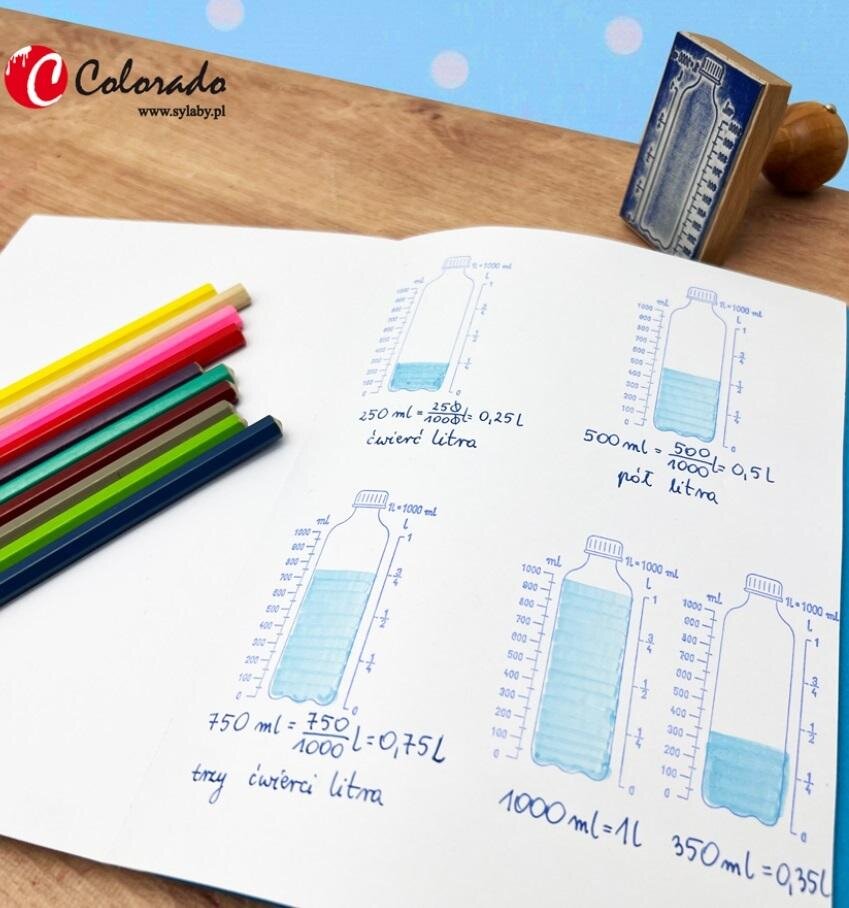 Colorado
www.sylaby.pl
1L=1000 ml
ml
l
1000
900
800
700
600
500
400
300
200
100
0
1
3/4
1/2
1/4
0
250 ml = 250/1000 l = 0,25 l
ćwierć litra
1L=1000 ml
ml
l
1000
900
800
700
600
500
400
300
200
100
0
1
3/4
1/2
1/4
0
500 ml = 500/1000 l = 0,5 l
pół litra
1L=1000 ml
ml
l
1000
900
800
700
600
500
400
300
200
100
0
1
3/4
1/2
1/4
0
750 ml = 750/1000 l = 0,75 l
trzy ćwierci litra
1L=1000 ml
ml
l
1000
900
800
700
600
500
400
300
200
100
0
1
3/4
1/2
1/4
0
1000 ml = 1l
1L=1000 ml
ml
l
1000
900
800
700
600
500
400
300
200
100
0
1
3/4
1/2
1/4
0
350 ml = 0,35 l